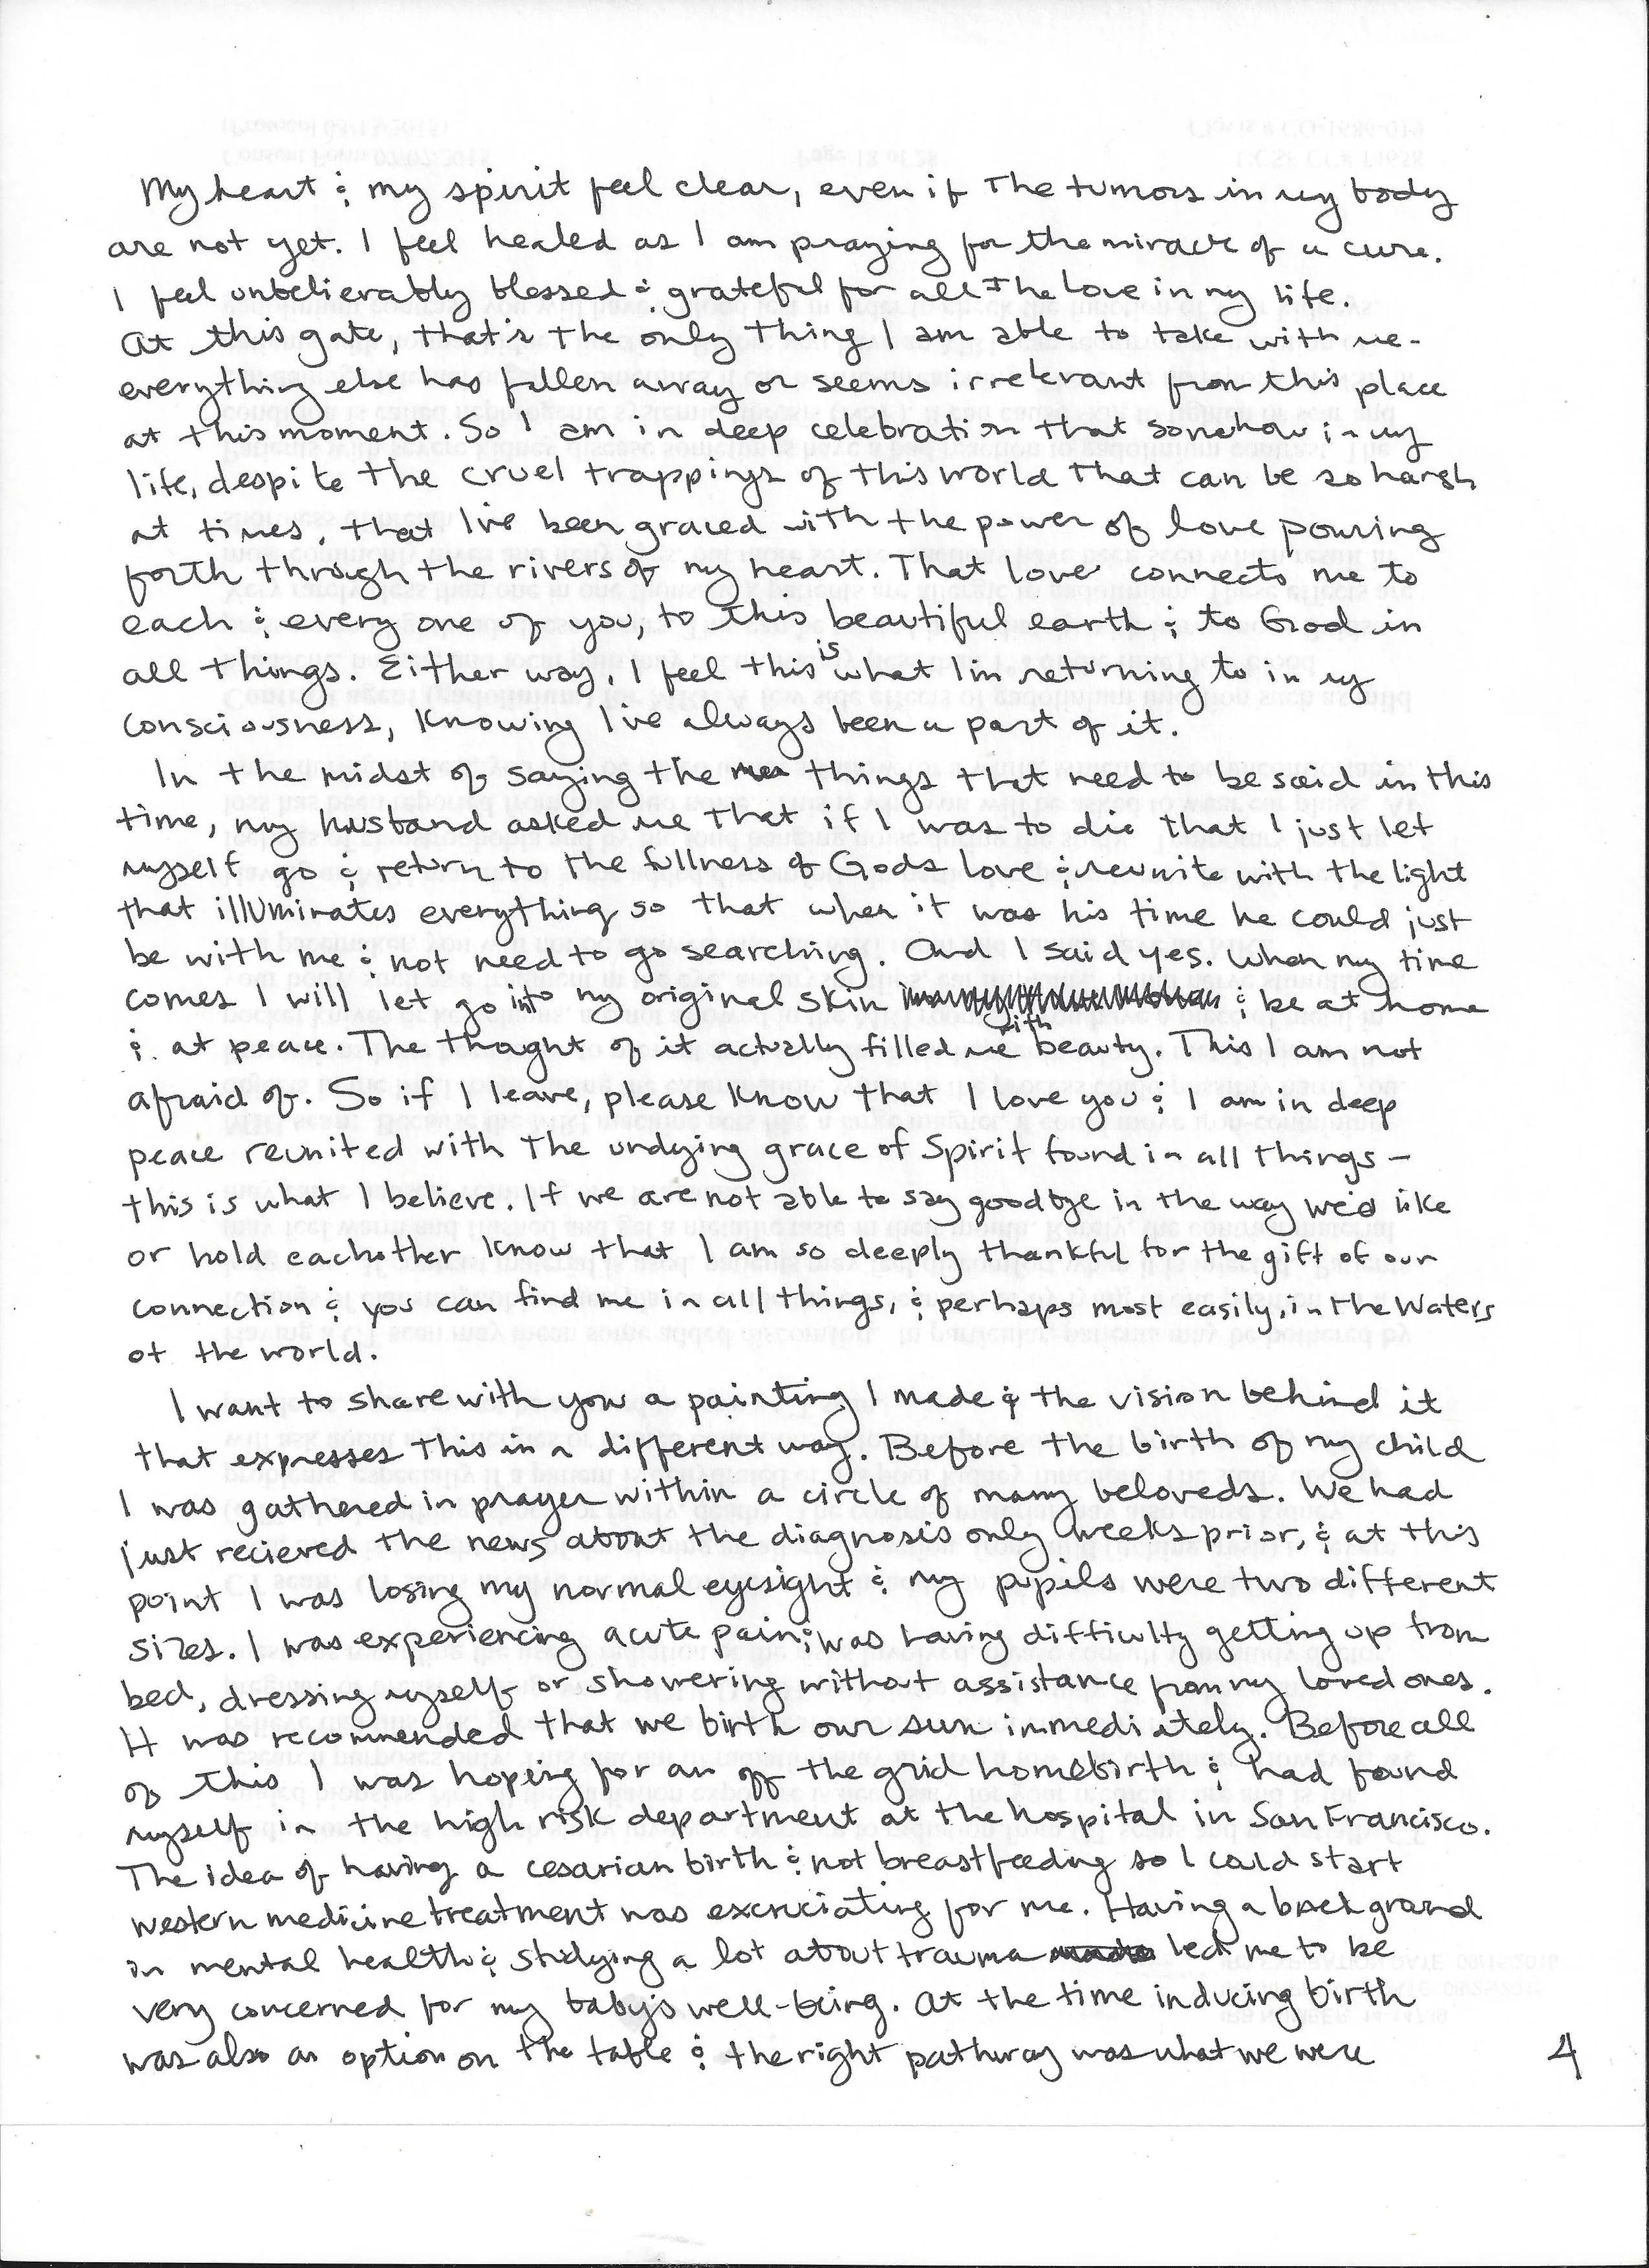 My heart & my spirit feel clear, even if the tumors in my body
are not yet. I feel healed as I am praying for the miracle of a cure.
I feel unbelievably blessed & grateful for all the love in my life.
At this gate, that's the only thing I am able to take with me -
everything else has fallen away or seems irrelevant from this place
at this moment. So I am in deep celebration that somehow in my
life, despite the cruel trappings of this world that can be so harsh
at times, that I've been graced with the power of love pouring
forth through the rivers of my heart. That love connects me to
each & every one of you, to this beautiful earth & to God in
all things. Either way, I feel this is what I'm returning to in my
consciousness, knowing I've always been a part of it.
In the midst of saying the things that need to be said in this
time, my husband asked me that if I was to die that I just let
myself go & return to the fullness of Gods love & reunite with the light
that illuminates everything so that when it was his time he could just
be with me & not need to go searching. And I said yes. When my time
comes I will let go into my original skin & be at home
& at peace. The thought of it actually filled me with beauty. This I am not
afraid of. So if I leave, please know that I love you & I am in deep
peace reunited with the undying grace of Spirit found in all things -
this is what I believe. If we are not able to say goodbye in the way we'd like
or hold eachother know that I am so deeply thankful for the gift of our
connection & you can find me in all things, & perhaps most easily, in the Waters
of the world.
I want to share with you a painting I made & the vision behind it
that expresses this in a different way. Before the birth of my child
I was gathered in prayer within a circle of many beloveds. We had
just recieved the news about the diagnosis only weeks prior, & at this
point I was losing my normal eyesight & my pupils were two different
sizes. I was experiencing acute pain & was having difficulty getting up from
bed, dressing myself or showering without assistance from my loved ones.
It was recommended that we birth our sun immediately. Before all
of this I was hoping for an off the grid homebirth & had found
myself in the high risk department at the hospital in San Francisco.
The idea of having a cesarian birth & not breastfeeding so I could start
western medicine treatment was excruciating for me. Having a background
in mental health & studying a lot about trauma led me to be
very concerned for my baby's well-being. At the time inducing birth
was also an option on the table & the right pathway was what we were
4